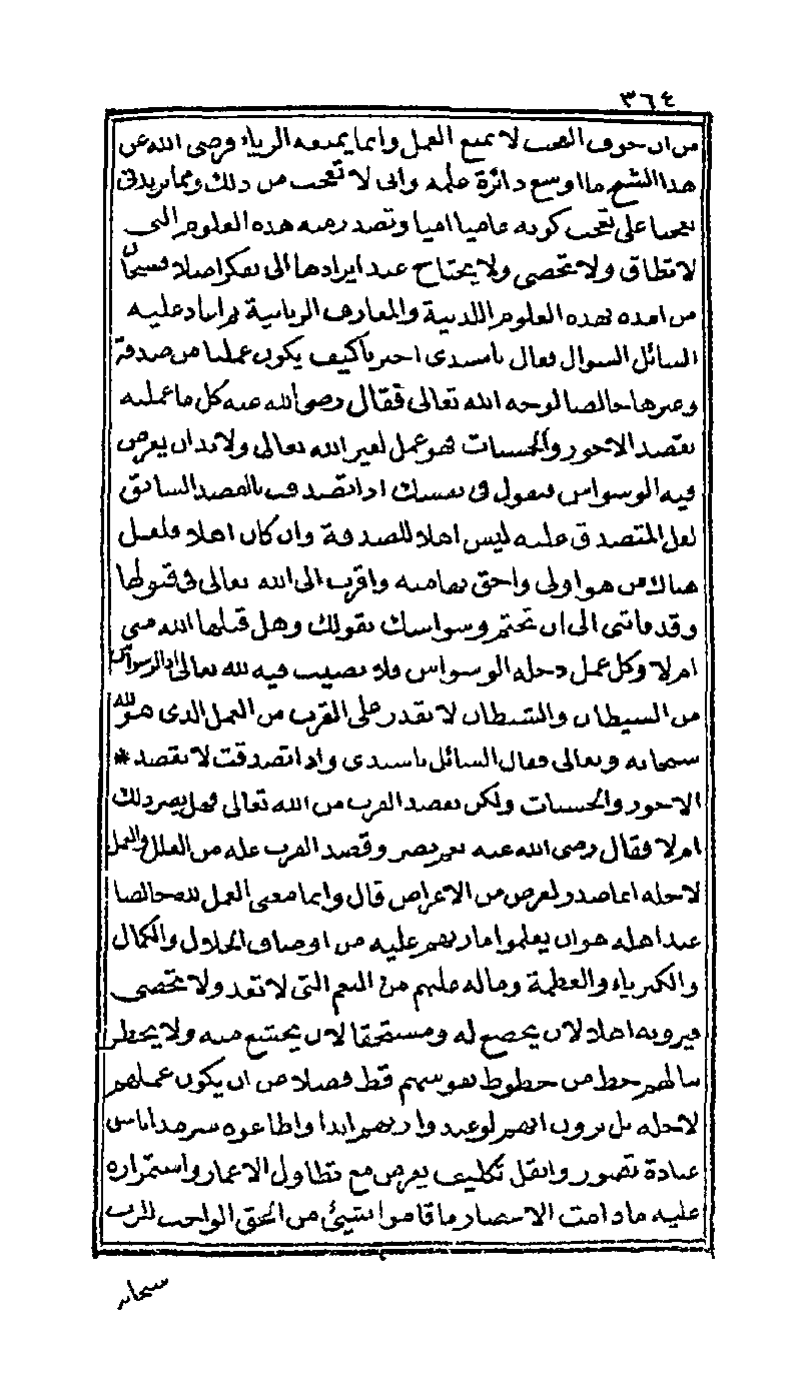 ٣٦٤
من ان خوف العجب لا يمنع العمل وانما يمنعه الرياء فرضى الله عن
هذا الشيخ ما اوسع دائرة علمه وانى لا تعجب من ذلك ومما يزيدنى
تعجبا على تعجب كونه عاميا اميا وتصدر منه هذه العلوم التى
لا تطاق ولا تحصى ولا يحتاج عند ايرادها الى تفكر اصلا فسبحان
من امده بهذه العلوم اللدنية والمعارف الربانية ثم اعاد عليه
السائل السوال فقال يا سيدى اخبرنا كيف يكون عملنا من صدقة
وغيرها خالصا لوجه الله تعالى فقال رضى الله عنه كل ما عملته
بقصد الاجور والحسنات فهو عمل لغير الله تعالى ولا بد ان يعرض
فيه الوسواس فتقول فى نفسك اذا تصدقت بالقصد السابق
لعل المتصدق عليه ليس اهلا للصدقة وان كان اهلا فلعل
هناك من هو اولى واحق بها منه واقرب الى الله تعالى فى قبولها
وقد تاتى الى ان تختم وسواسك بقولك وهل قبلها الله منى
ام لا وكل عمل دخله الوسواس فلا نصيب فيه لله تعالى اذ الوسواس
من الشيطان والشيطان لا يقدر على القرب من العمل الذى هو لله
سبحانه وتعالى فقال السائل يا سيدى واذا تصدقت لا بقصد *
الاجور والحسنات ولكن بقصد القرب من الله تعالى فهل يضر ذلك
ام لا فقال رضى الله عنه نعم يضر وقصد القرب علة من العلل والعمل
لاجله انما صدر لغرض من الاغراض قال وانما معنى العمل لله خالصا
عند اهله هو ان يعلموا ما ربهم عليه من اوصاف الجلال والكمال
والكبرياء والعظمة وما له عليهم من النعم التى لا تعد ولا تحصى
فيرونه اهلا لان يخضع له ومستحقا لان يخشع منه ولا يخطر
ببالهم حظ من حظوظ نفوسهم قط فضلا من ان يكون عملهم
لاجله بل يرون انهم لو عبدوا ربهم ابدا واطاعوه سرمدا باشق
عبادة تتصور واثقل تكليف يعرض مع تطاول الاعمار واستمراره
عليه ما دامت الاعصار ما قاموا بشيئ من الحق الواجب للرب
سبحانه